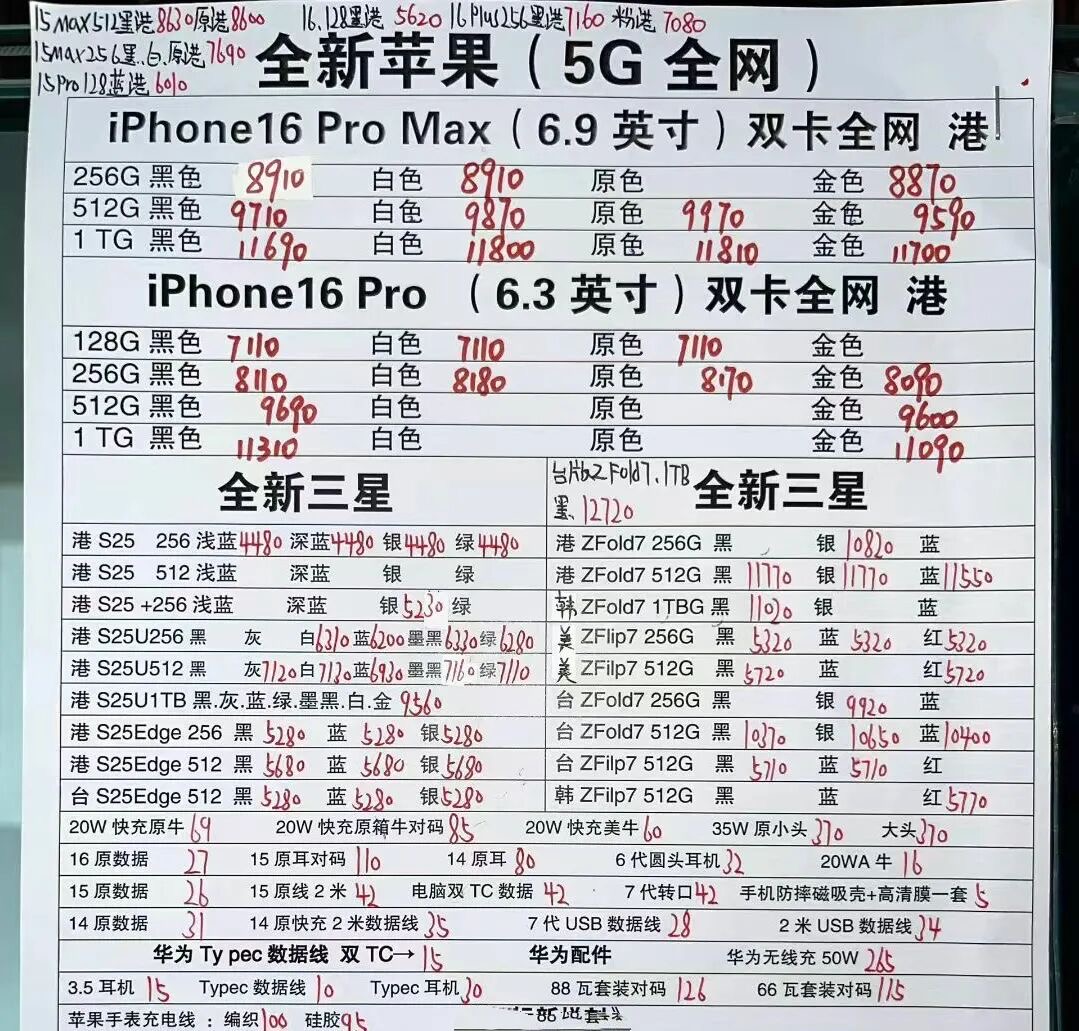 15Max512墨港8630原港8600 16.128墨港5620 16Plus256墨港7160 粉港7080
15max256黑.白.原港7690
15Pro128蓝港6010
全新苹果（5G 全网）
iPhone16 Pro Max（6.9 英寸）双卡全网 港
256G 黑色 8910 白色 8910 原色 金色 8870
512G 黑色 9710 白色 9870 原色 9970 金色 9590
1 TG 黑色 11690 白色 11800 原色 11810 金色 11700
iPhone16 Pro （6.3 英寸）双卡全网 港
128G 黑色 7110 白色 7110 原色 7110 金色
256G 黑色 8110 白色 8180 原色 8170 金色 8090
512G 黑色 9690 白色 原色 金色 9600
1 TG 黑色 11310 白色 原色 金色 11090
全新三星
港 S25 256 浅蓝4480 深蓝4480 银4480 绿4480
港 S25 512 浅蓝 深蓝 银 绿
港 S25 +256 浅蓝 深蓝 银5230 绿
港 S25U256 黑 灰 白6310 蓝6200 墨黑6330 绿6280
港 S25U512 黑 灰7120 白7130 蓝6930 墨黑7160 绿7110
港 S25U1TB 黑.灰.蓝.绿.墨黑.白.金 9560
港 S25Edge 256 黑 5280 蓝 5280 银5280
港 S25Edge 512 黑 5680 蓝 5680 银5680
台 S25Edge 512 黑 5280 蓝 5280 银5280
台版ZFold7.1TB
黑.12720
全新三星
港 ZFold7 256G 黑 银 10820 蓝
港 ZFold7 512G 黑 11770 银 11770 蓝 11550
韩 ZFold7 1TBG 黑 11020 银 蓝
美 ZFlip7 256G 黑 5320 蓝 5320 红5320
美 ZFilp7 512G 黑 5720 蓝 红5720
台 ZFold7 256G 黑 银 9920 蓝
台 ZFold7 512G 黑 10370 银 10650 蓝10400
台 ZFilp7 512G 黑 5710 蓝 5710 红
韩 ZFilp7 512G 黑 蓝 红5770
20W 快充原牛 69 20W 快充原箱牛对码 85 20W 快充美牛 60 35W 原小头 370 大头370
16 原数据 27 15 原耳对码 110 14 原耳 80 6 代圆头耳机 32 20WA 牛 16
15 原数据 26 15 原线 2 米 42 电脑双 TC 数据 42 7 代转口42 手机防摔磁吸壳+高清膜一套 5
14 原数据 31 14 原快充 2 米数据线 35 7 代 USB 数据线 28 2 米 USB 数据线 34
华为 Ty pec 数据线 双 TC→ 15 华为配件 华为无线充 50W 265
3.5 耳机 15 Typec 数据线 10 Typec 耳机 30 88 瓦套装对码 126 66 瓦套装对码 115
苹果手表充电线 : 编织100 硅胶95